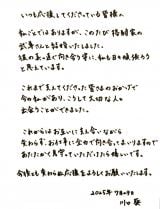 いつも応援してくださっている皆様へ
私ごとではありますが、このたび
武勇さんと結婚いたしました。
と思えています。
これまで支えてくださった皆さまのおかげで
今の私があり、こうして大切な人と
出会うことができました。
これからはお互いに支え合いながら
変わらず、お仕事に全力で向き合ってまいりますので
あたたかく見守っていただけたら嬉しいです。
今後とも変わらぬ応援をよろしくお願いいたします。
2025年7月9日
川口 葵